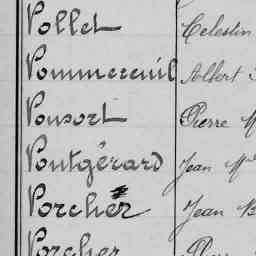 Pollet Celestin
Pommereuil Albert
Ponsort Pierre
Pontgérard Jean
Porcher Jean
Porcher